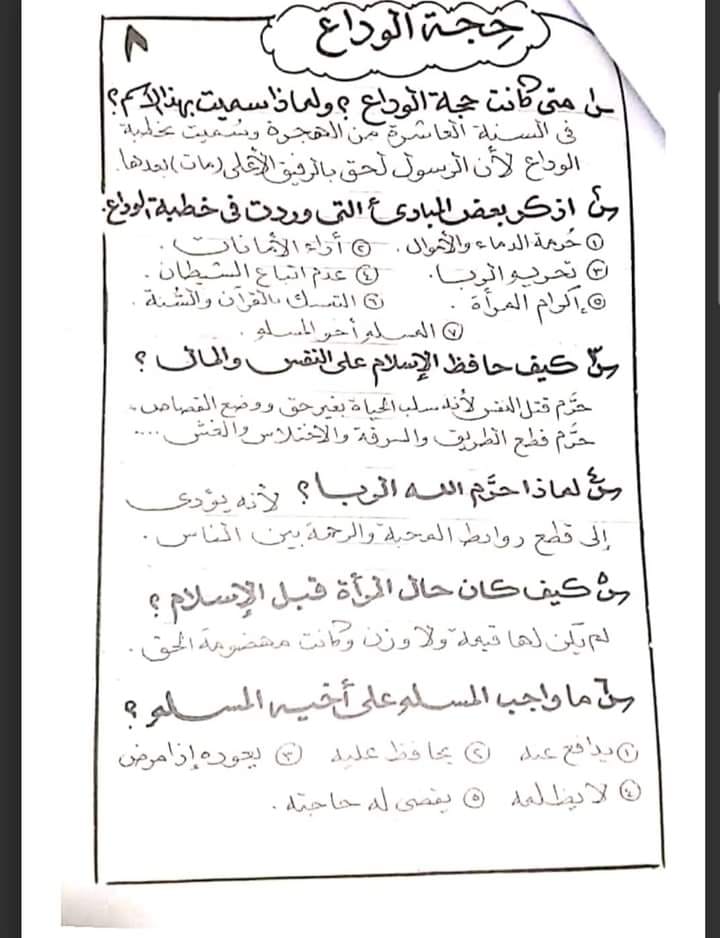 حجة الوداع
٨
س١ متى كانت حجة الوداع ؟ ولماذا سميت بهذا الاسم ؟
فى السنة العاشرة من الهجرة وسُميت بخطبة
الوداع لأن الرسول لحق بالرفيق الأعلى (مات) بعدها.
س٢ اذكر بعض المبادئ التى وردت فى خطبة الوداع.
① حُرمة الدماء والأموال . ② أداء الأمانات .
③ تحريم الربا. ④ عدم اتباع الشيطان .
⑤ إكرام المرأة . ⑥ التمسك بالقرآن والسُّنة .
⑦ المسلم أخو المسلم .
س٣ كيف حافظ الإسلام على النفس والمال ؟
حرَّم قتل النفس لأنه سلب الحياة بغير حق ووضع القصاص .
حرَّم قطع الطريق والسرقة والاختلاس والغش ....
س٤ لماذا حرَّم الله الربا ؟ لأنه يؤدى
إلى قطع روابط المحبة والرحمة بين الناس .
س٥ كيف كان حال المرأة قبل الإسلام ؟
لم يكن لها قيمة ولا وزن وكانت مهضومة الحق .
س٦ ما واجب المسلم على أخيه المسلم ؟
① يدافع عنه ② يحافظ عليه ③ يعوده إذا مرض
④ لا يظلمه ⑤ يقضى له حاجته .